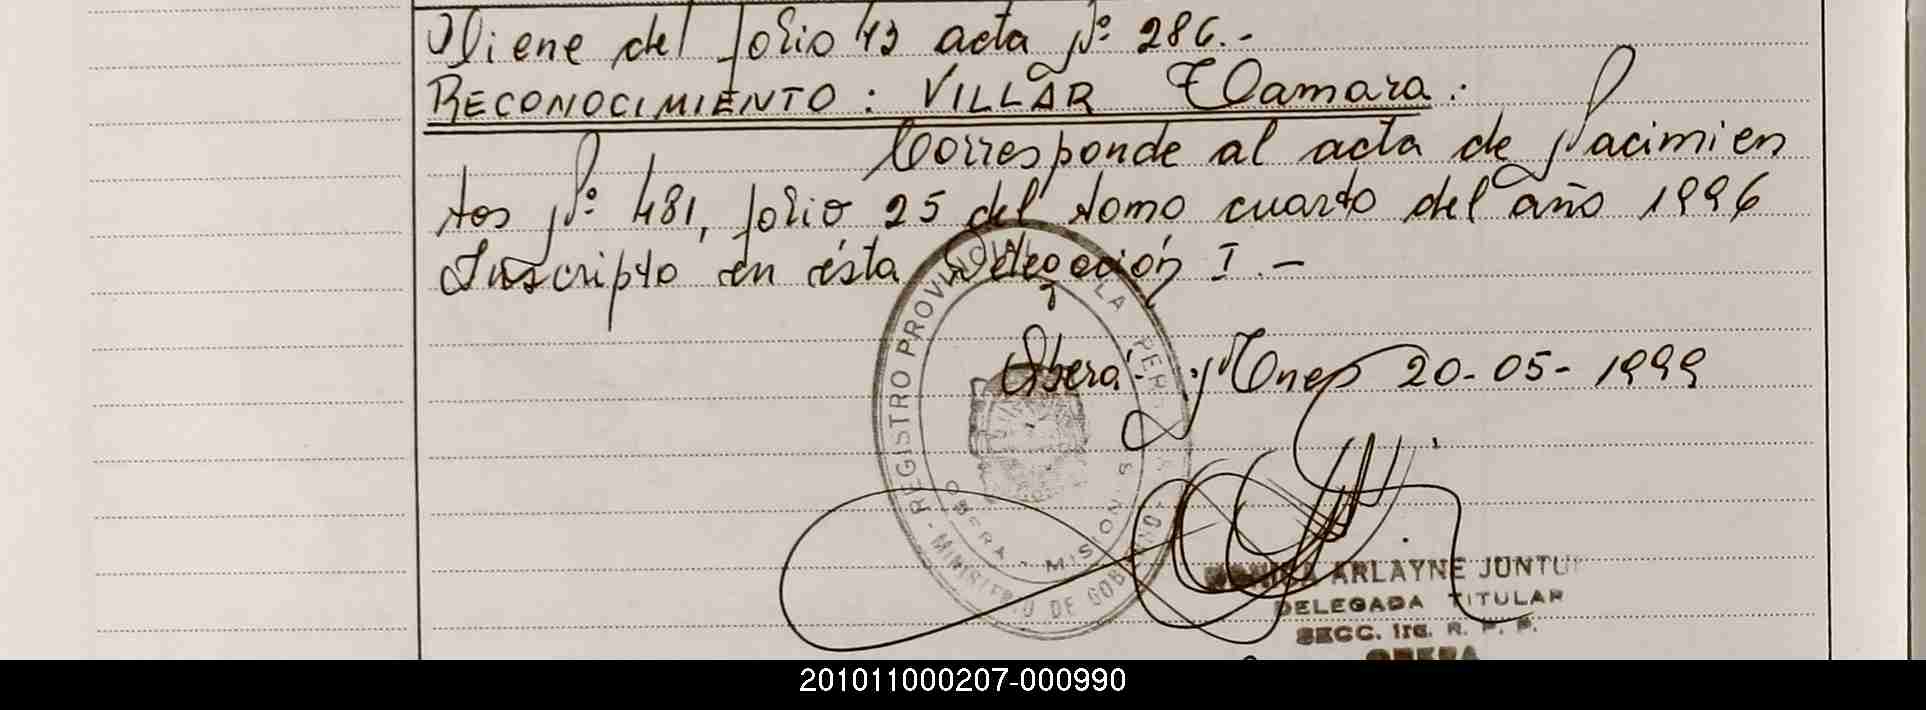 Viene del folio 43 acta Nº 286.-
RECONOCIMIENTO: VILLAR Tamara.
Corresponde al acta de Nacimien
tos Nº 481, folio 25 del tomo cuarto del año 1996
Inscripto en ésta Delegación I.-
Oberá. Mnes 20-05-1999
REGISTRO PROVINCIAL LA PERS
OBERA - MISIONES
MINISTERIO DE GOBIERNO
ARLAYNE
DELEGADA TITULAR
SECC. 1ra. R. P. P.
OBERA
201011000207-000990